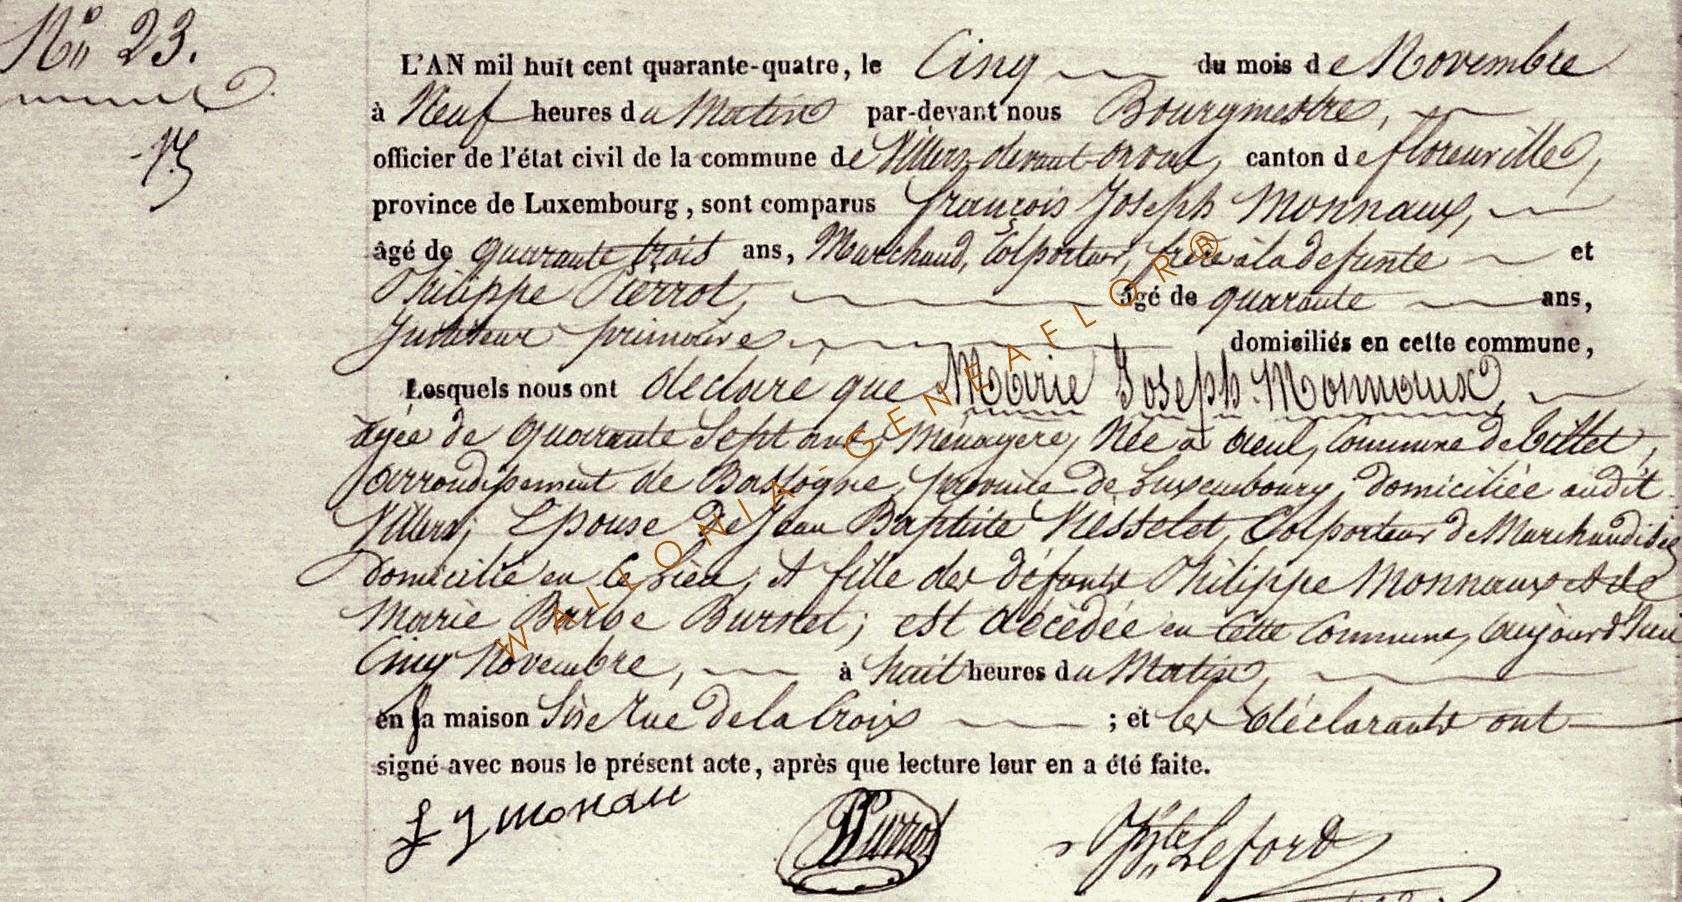 No 23.
L'AN mil huit cent quarante-quatre, le Cinq du mois de Novembre
à Neuf heures du Matin par-devant nous Bourgmestre,
officier de l'état civil de la commune de Villers devant orval, canton de florenville,
province de Luxembourg, sont comparus françois Joseph Monnaux,
âgé de quarante trois ans, Marchand, Colporteur, frère à la defunte et
Philippe Pierrot, âgé de quarante ans,
Instituteur primaire, domiciliés en cette commune,
Lesquels nous ont declaré que Marie Joseph Monnaux,
agée de quarante Sept ans, Ménagère, Née à Commune de Tillet,
arrondissement de Bastogne, province de Luxembourg, domiciliée audit
Villers; Epouse De Jean Baptiste Nesselet, Colporteur de Marchandises
Domicilié en Ce Lieu, et fille des défunts Philippe Monnaux et de
Marie Barbe Burnet; est décédée en Cette Commune, aujourd'hui
Cinq Novembre, à huit heures du Matin,
en sa maison Sise Rue de la Croix ; et les déclarants ont
signé avec nous le présent acte, après que lecture leur en a été faite.
f J monau
Pierrot
Leford
WALLONIA - GENEAFLOR®